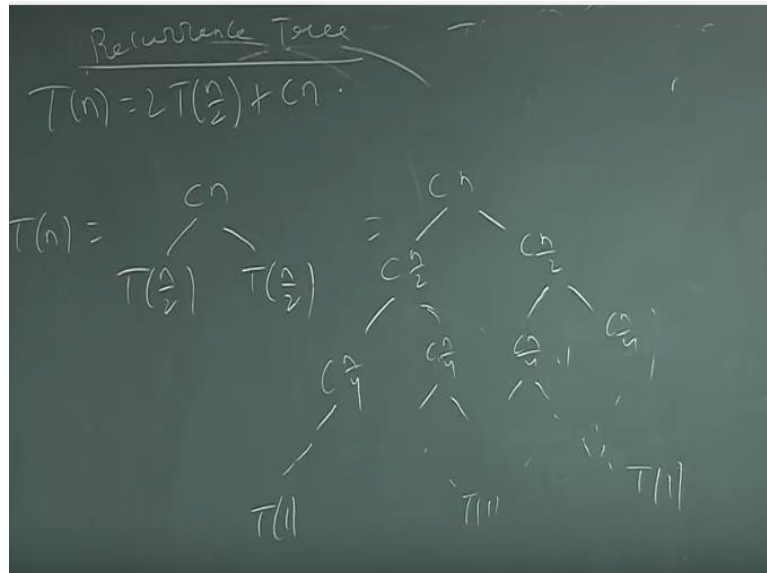 Recurrence Tree
T(n) = 2T(n/2) + Cn.
T(n) = Cn = Cn
T(n/2) T(n/2) Cn/2 Cn/2
Cn/4 Cn/4 Cn/4 Cn/4
T(1) T(1) T(1)